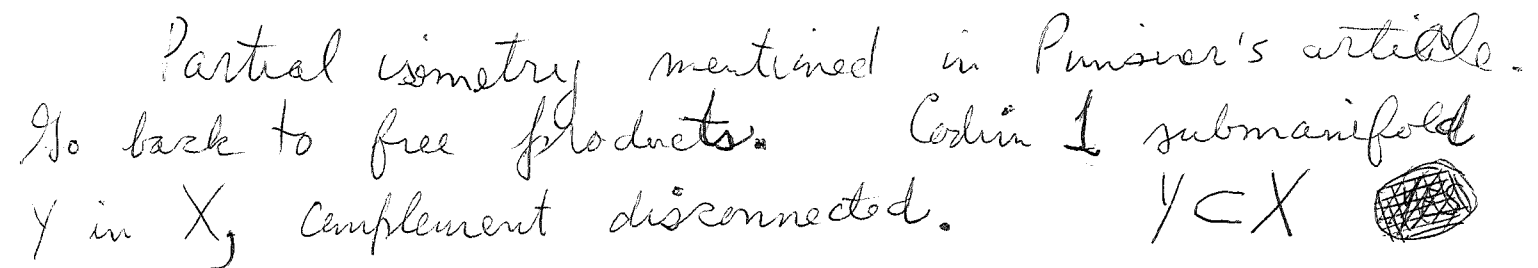 Partial isometry mentioned in Pimsner's article.
Go back to free products. Codim 1 submanifold
Y in X, complement disconnected. Y ⊂ X